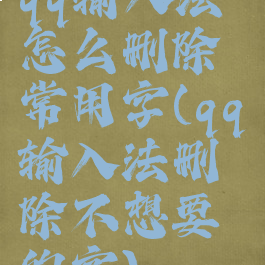 qq输入法
怎么删除
常用字(qq
输入法删
除不想要
的字)